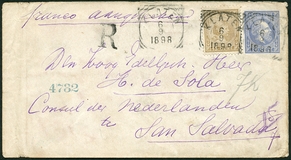 Franco Aangeteekend
R
KLATEN
6
9
1898
6
9
1898
Den Hoog Edelgeb. Heer
4782
H. de Sola
Consul des Nederlanden
te
San Salvador